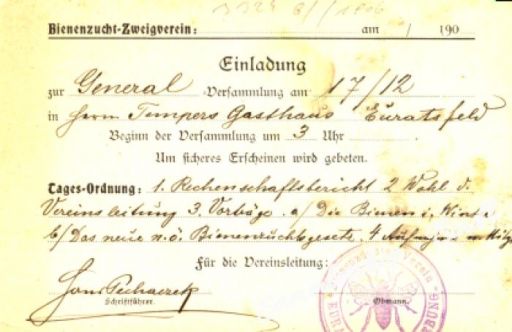 Bienenzucht-Zweigverein: am / 190
Einladung
zur General Versammlung am 17/12
in Herrn Tempers Gasthaus Euratsfeld
Beginn der Versammlung um 3 Uhr
Um sicheres Erscheinen wird gebeten.
Tages-Ordnung: 1. Rechenschaftsbericht 2 Wahl d.
Vereinsleitung 3. Vorträge. a/ Die Bienen i. Wint
b/ Das neue n.ö. Bienenzuchtsgesetz. 4
Für die Vereinsleitung:
Schriftführer. Obmann.